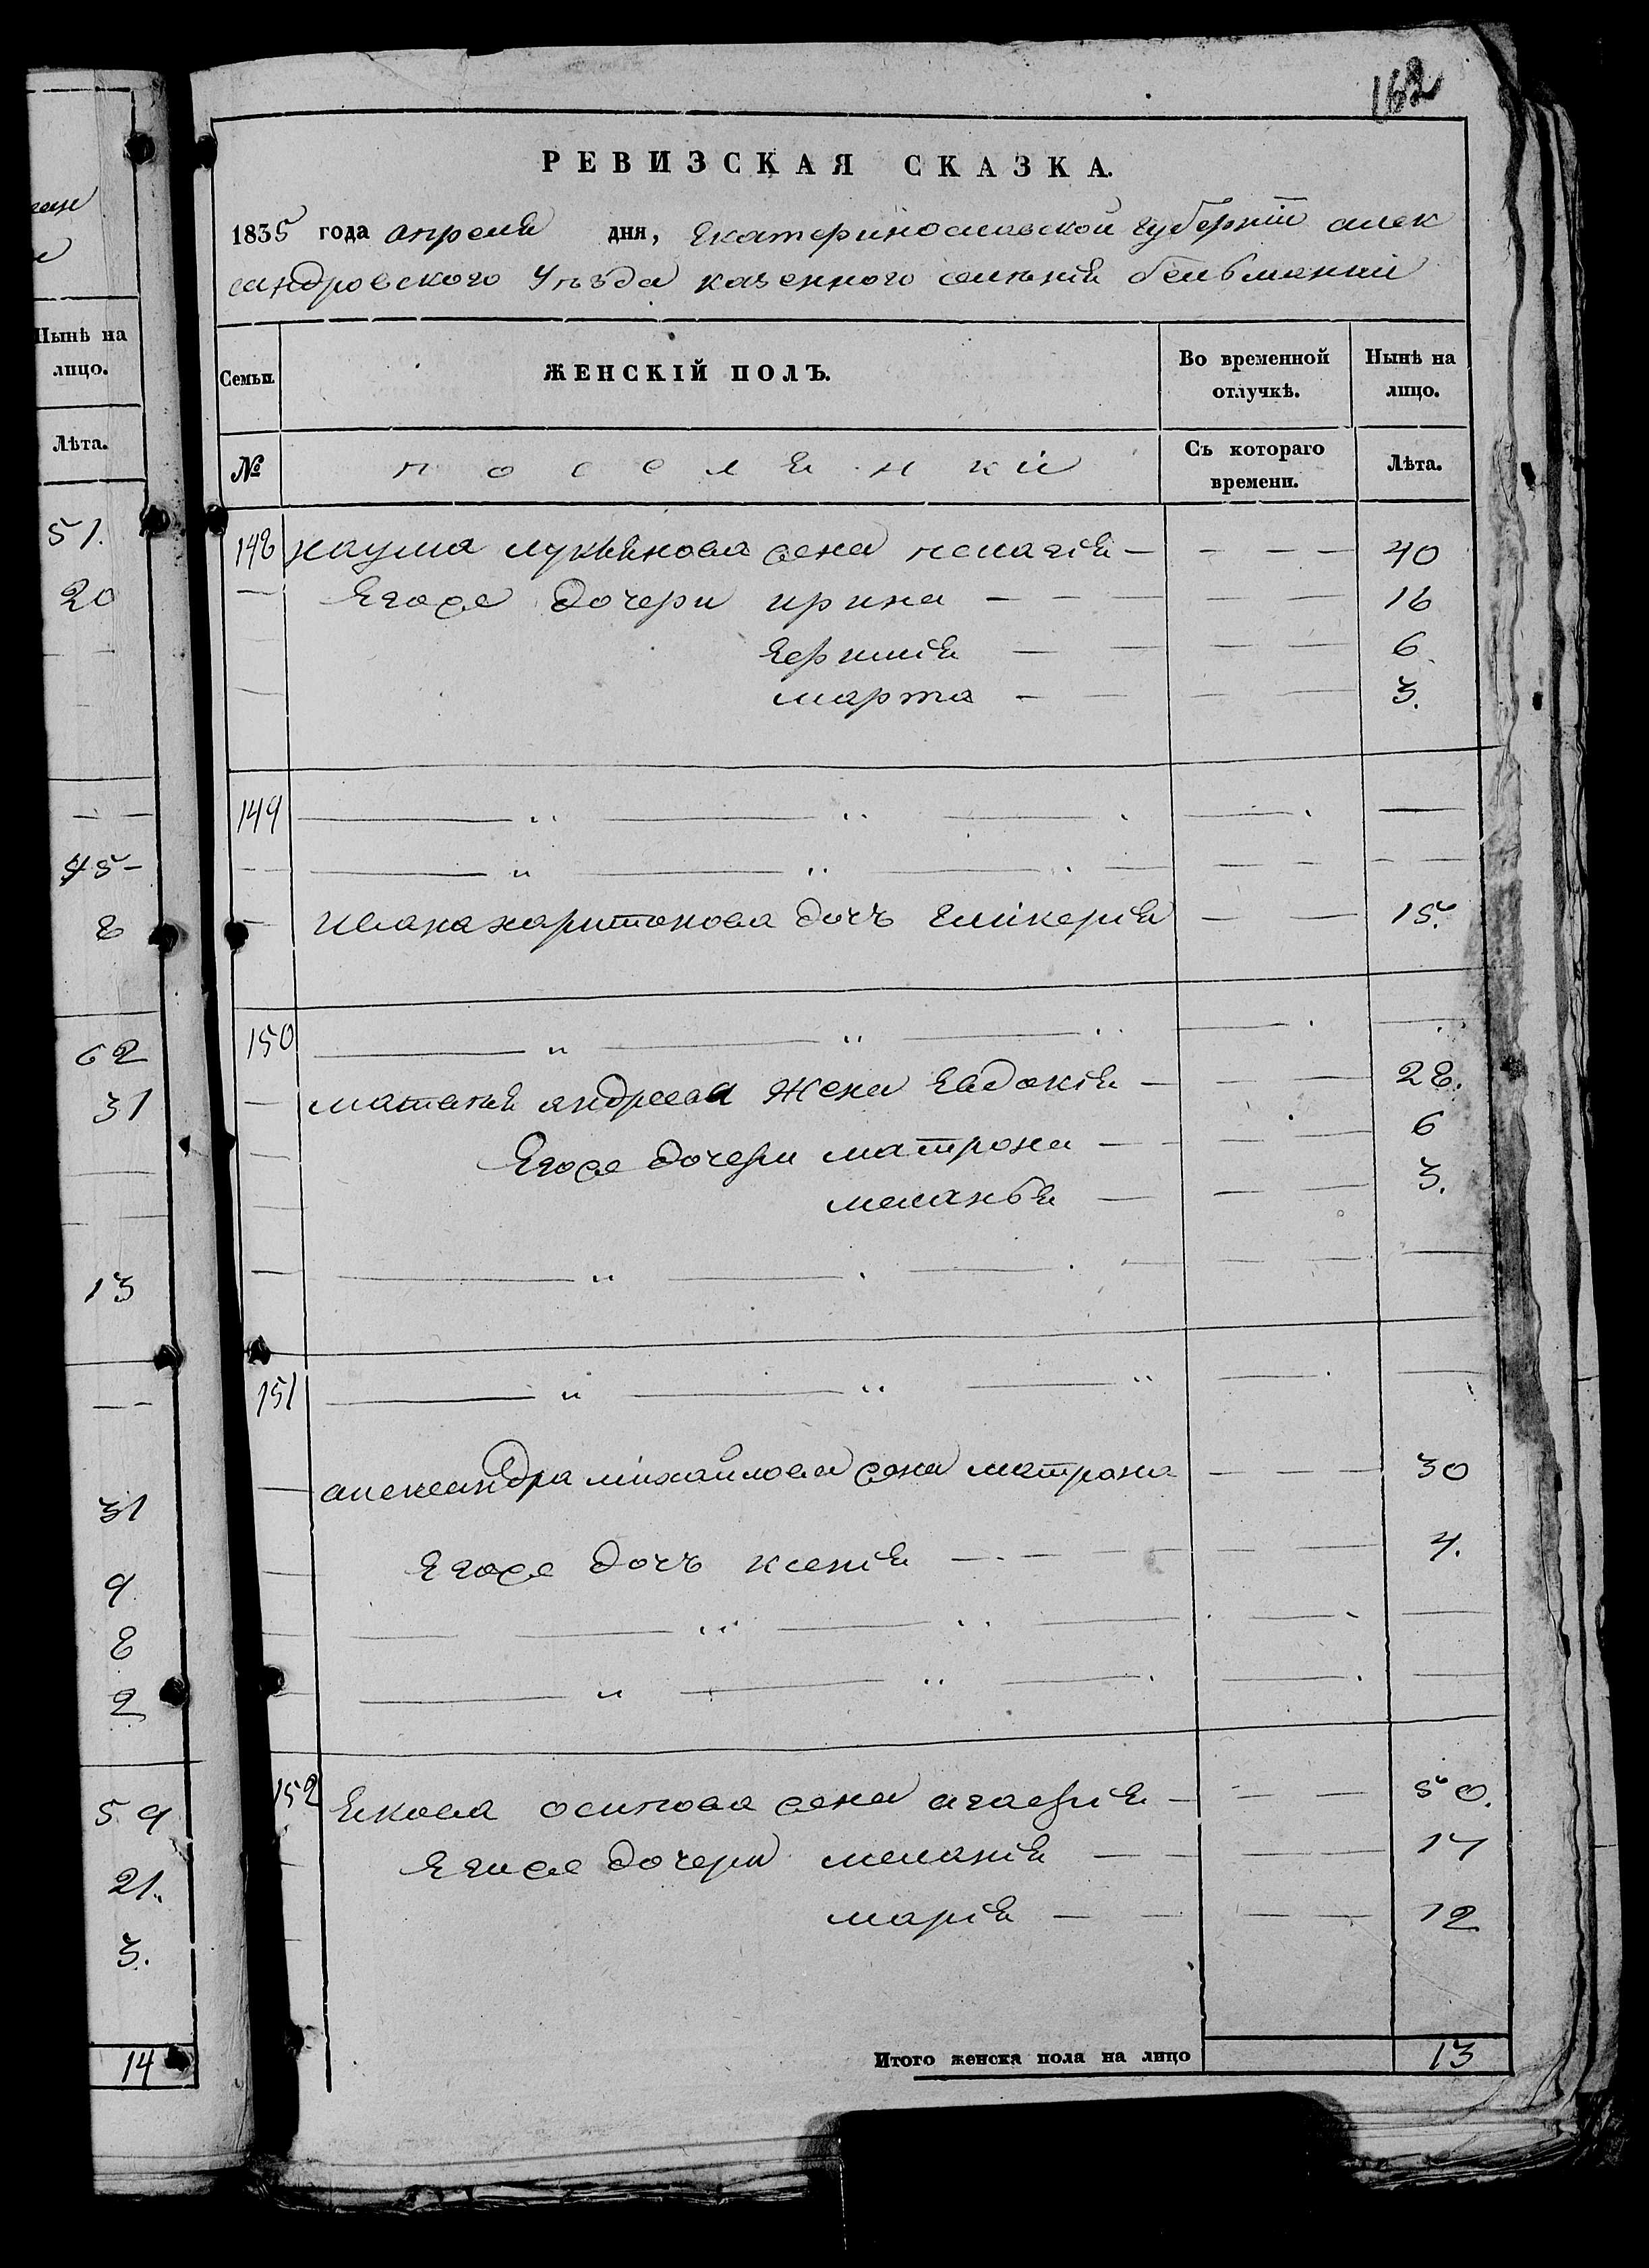 162
РЕВИЗСКАЯ СКАЗКА.
1835 года апреля дня, Екатеринославской губернiи алек
сандровского Уъзда казенного селенiя бельманки
Семьи.
ЖЕНСКІЙ ПОЛЪ.
Во временной отлучкѣ.
Нынѣ на лицо.
№
поселянки
Съ котораго времени.
Лѣта.
148 наума лукянова жена пелагiя — — — — 40
Егоже дочери ирина — — — — — 16
— — — — 6
марта — — — — 3.
149
ивана харитонова дочъ гликерiя — — 15.
150
матвея андреева жена Евдокiя — — — 28.
Егоже дочери матрона — — — — 6
меланья — — — 3.
151
александра михайлова жена матрона — — — 30
Егоже дочъ ксенiя — — — — — 4.
152 Якова осипова жена агафiя — — — — 50.
Егоже дочери меланiя — — — — 17
марiя — — — — — 12
Итого женска пола на лицо 13
Нынѣ на
лицо.
Лѣта.
51.
20
45
8
62
31
13
31
9
8
2
59
21.
3.
14